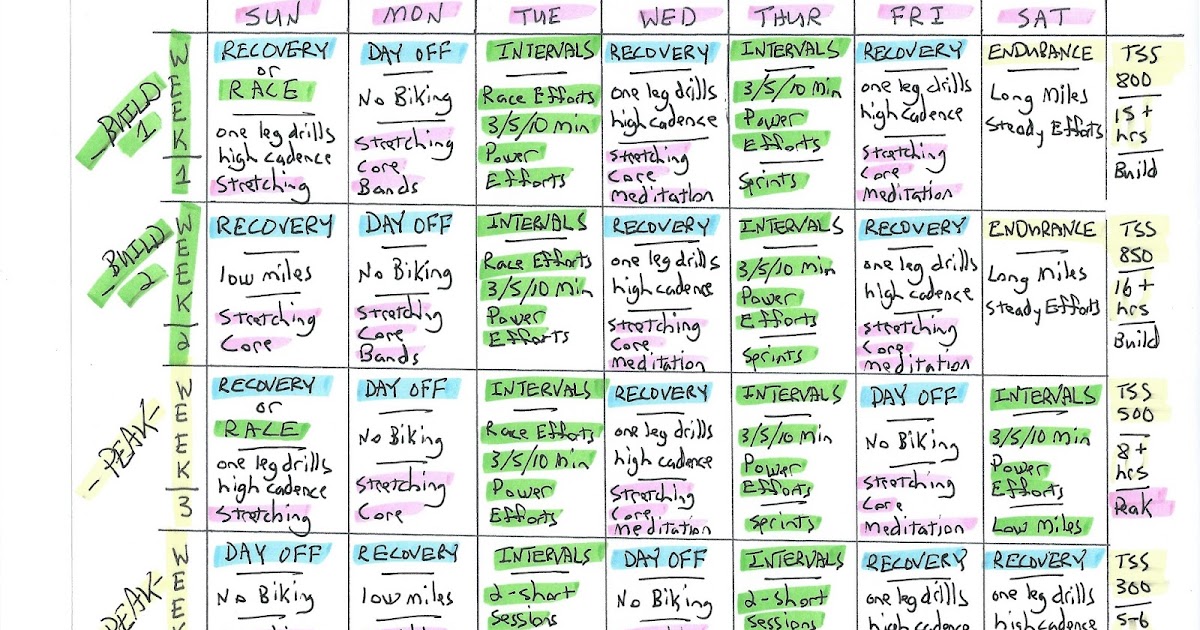 SUN MON TUE WED THUR FRI SAT
BUILD 1
WEEK 1
RECOVERY
or
RACE
one leg drills
high cadence
Stretching
DAY OFF
No Biking
Stretching
Core
Bands
INTERVALS
Race Efforts
3/5/10 min
Power
Efforts
RECOVERY
one leg drills
high cadence
Stretching
Core
meditation
INTERVALS
3/5/10 Min
Power
Efforts
Sprints
RECOVERY
one leg drills
high cadence
Stretching
Core
Meditation
ENDURANCE
Long Miles
Steady Efforts
TSS
800
15+
hrs
Build
BUILD 2
WEEK 2
RECOVERY
low miles
Stretching
Core
DAY OFF
No Biking
Stretching
Core
Bands
INTERVALS
Race Efforts
3/5/10 Min
Power
Efforts
RECOVERY
one leg drills
high cadence
Stretching
Core
meditation
INTERVALS
3/5/10 min
Power
Efforts
Sprints
RECOVERY
one leg drills
high cadence
Stretching
Core
meditation
ENDURANCE
Long Miles
Steady Efforts
TSS
850
16+
hrs
Build
-PEAK-
WEEK 3
RECOVERY
or
RACE
one leg drills
high cadence
Stretching
DAY OFF
No Biking
Stretching
Core
INTERVALS
Race Efforts
3/5/10 Min
Power
Efforts
RECOVERY
one leg drills
high cadence
Stretching
Core
meditation
INTERVALS
3/5/10 min
Power
Efforts
Sprints
DAY OFF
No Biking
Stretching
Core
Meditation
INTERVALS
3/5/10 min
Power
Efforts
Low Miles
TSS
500
8+
hrs
Peak
PEAK-
WEEK
DAY OFF
No Biking
RECOVERY
low miles
INTERVALS
2-short
Sessions
DAY OFF
No Biking
INTERVALS
2-short
Sessions
RECOVERY
one leg drills
high cadence
RECOVERY
one leg drills
high cadence
TSS
300
5-6